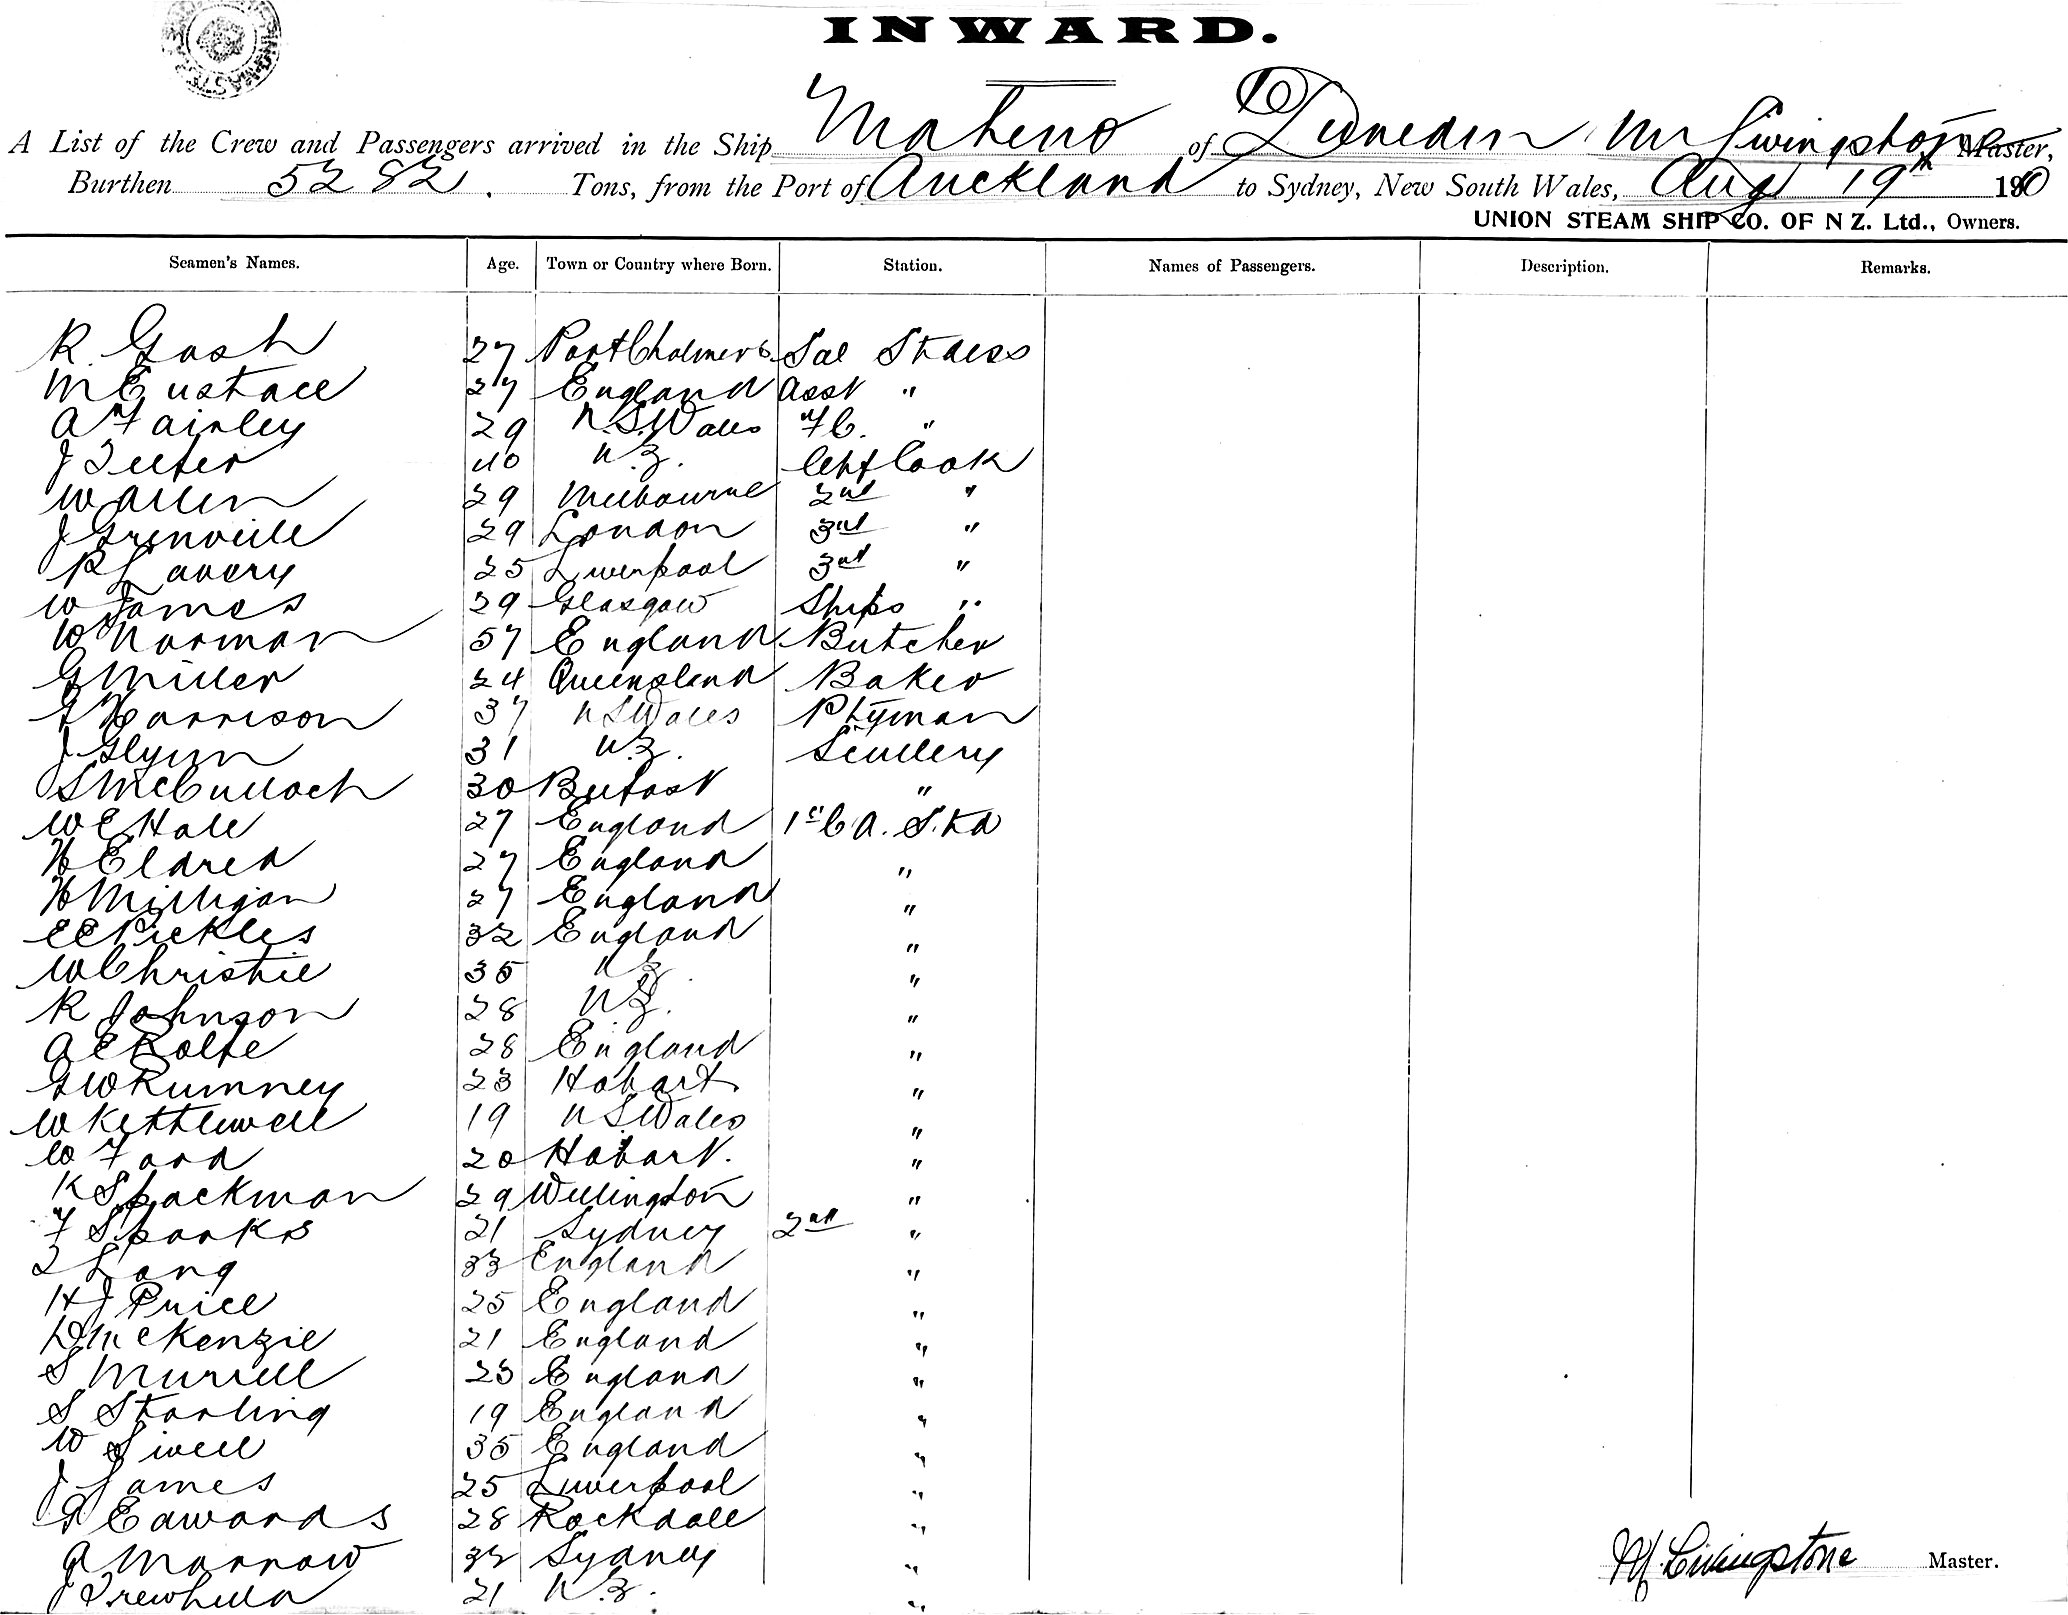 INWARD.
A List of the Crew and Passengers arrived in the Ship Maheno of Dunedin M Livingstone Master,
Burthen 5282. Tons, from the Port of Auckland to Sydney, New South Wales, Aug 19th 1910
UNION STEAM SHIP CO. OF N Z. Ltd., Owners.
Seamen's Names. Age. Town or Country where Born. Station. Names of Passengers. Description. Remarks.
R. Gash 27 Port Chalmers Sal Stdess
M Eustace 27 England Asst "
A Fairley 29 N.S.Wales F C. "
J 40 N.Z. Chf Cook
W Allen 29 Melbourne 2nd "
J Grenville 29 London 3rd "
R Lavery 25 Liverpool 3rd "
W James 29 Glasgow Ships "
W Norman 57 England Butcher
G Miller 24 Queensland Baker
Harrison 37 N S Wales Ptyman
J Glynn 31 N.Z. Scullery
S McCulloch 30 Belfast "
W E Hale 27 England 1st C A. Std
H Eldred 27 England "
H Milligan 27 England "
E E Pickles 32 England "
W Christie 35 N Z. "
R Johnson 28 N Z. "
A E Rolfe 28 England "
G W Rumney 23 Hobart "
W Kettlewell 19 N S Wales "
W Ford 20 Hobart. "
K Spackman 29 Wellington "
F Sparks 21 Sydney 2nd "
Lang 33 England "
H J Price 25 England "
D McKenzie 21 England "
S Murrell 23 England "
S Starling 19 England "
W 35 England "
J James 25 Liverpool "
G Edwards 28 Rockdale "
A Morrow 32 Sydney "
J Trewhella 21 N.Z. "
M. Livingstone Master.